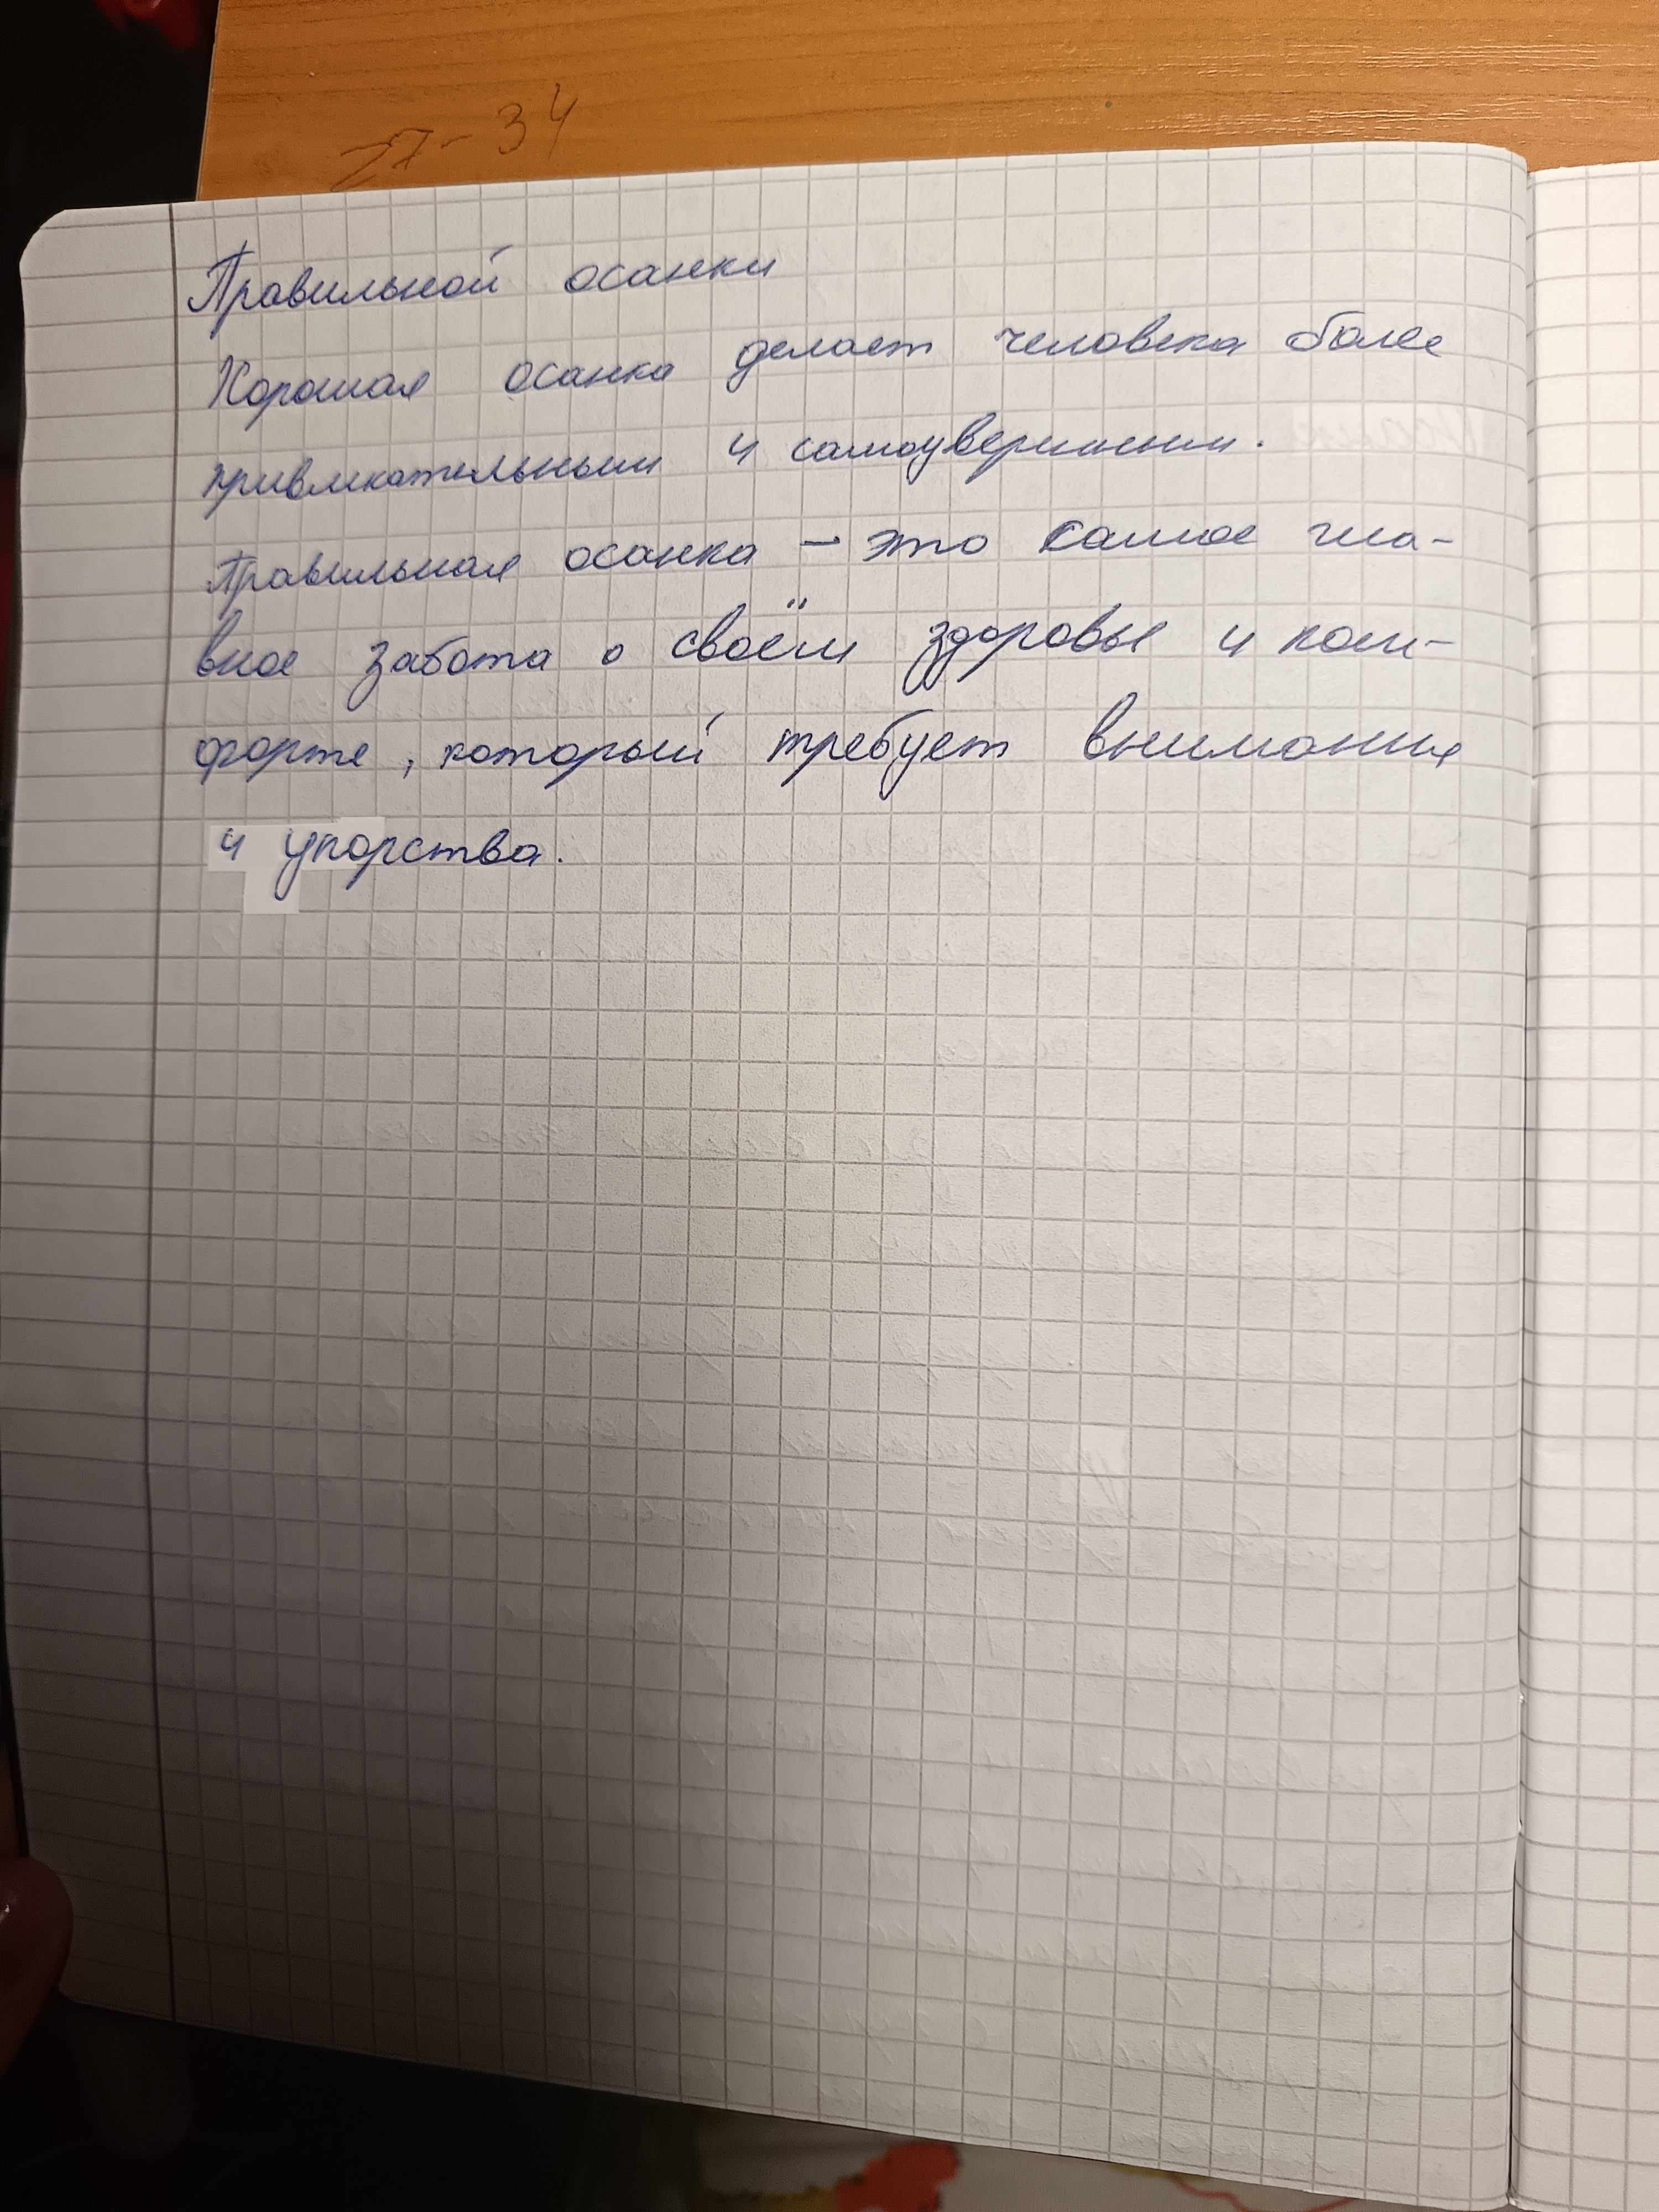 27-34
Правильной осанки
Хорошая осанка делает человека более
привликательным и самоувериным.
Правильная осанка - это самое гла-
вное забота о своём здоровье и ком-
форте, который требует внимания
и упорства.